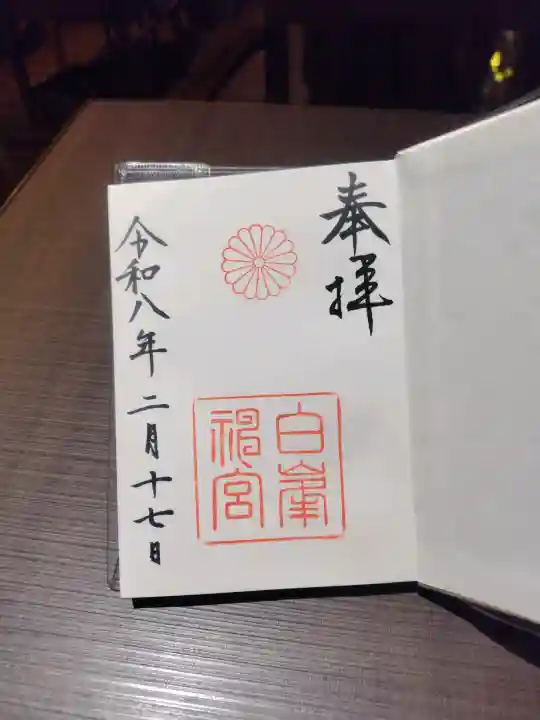 奉拝
白峯
神宮
令和八年二月十七日